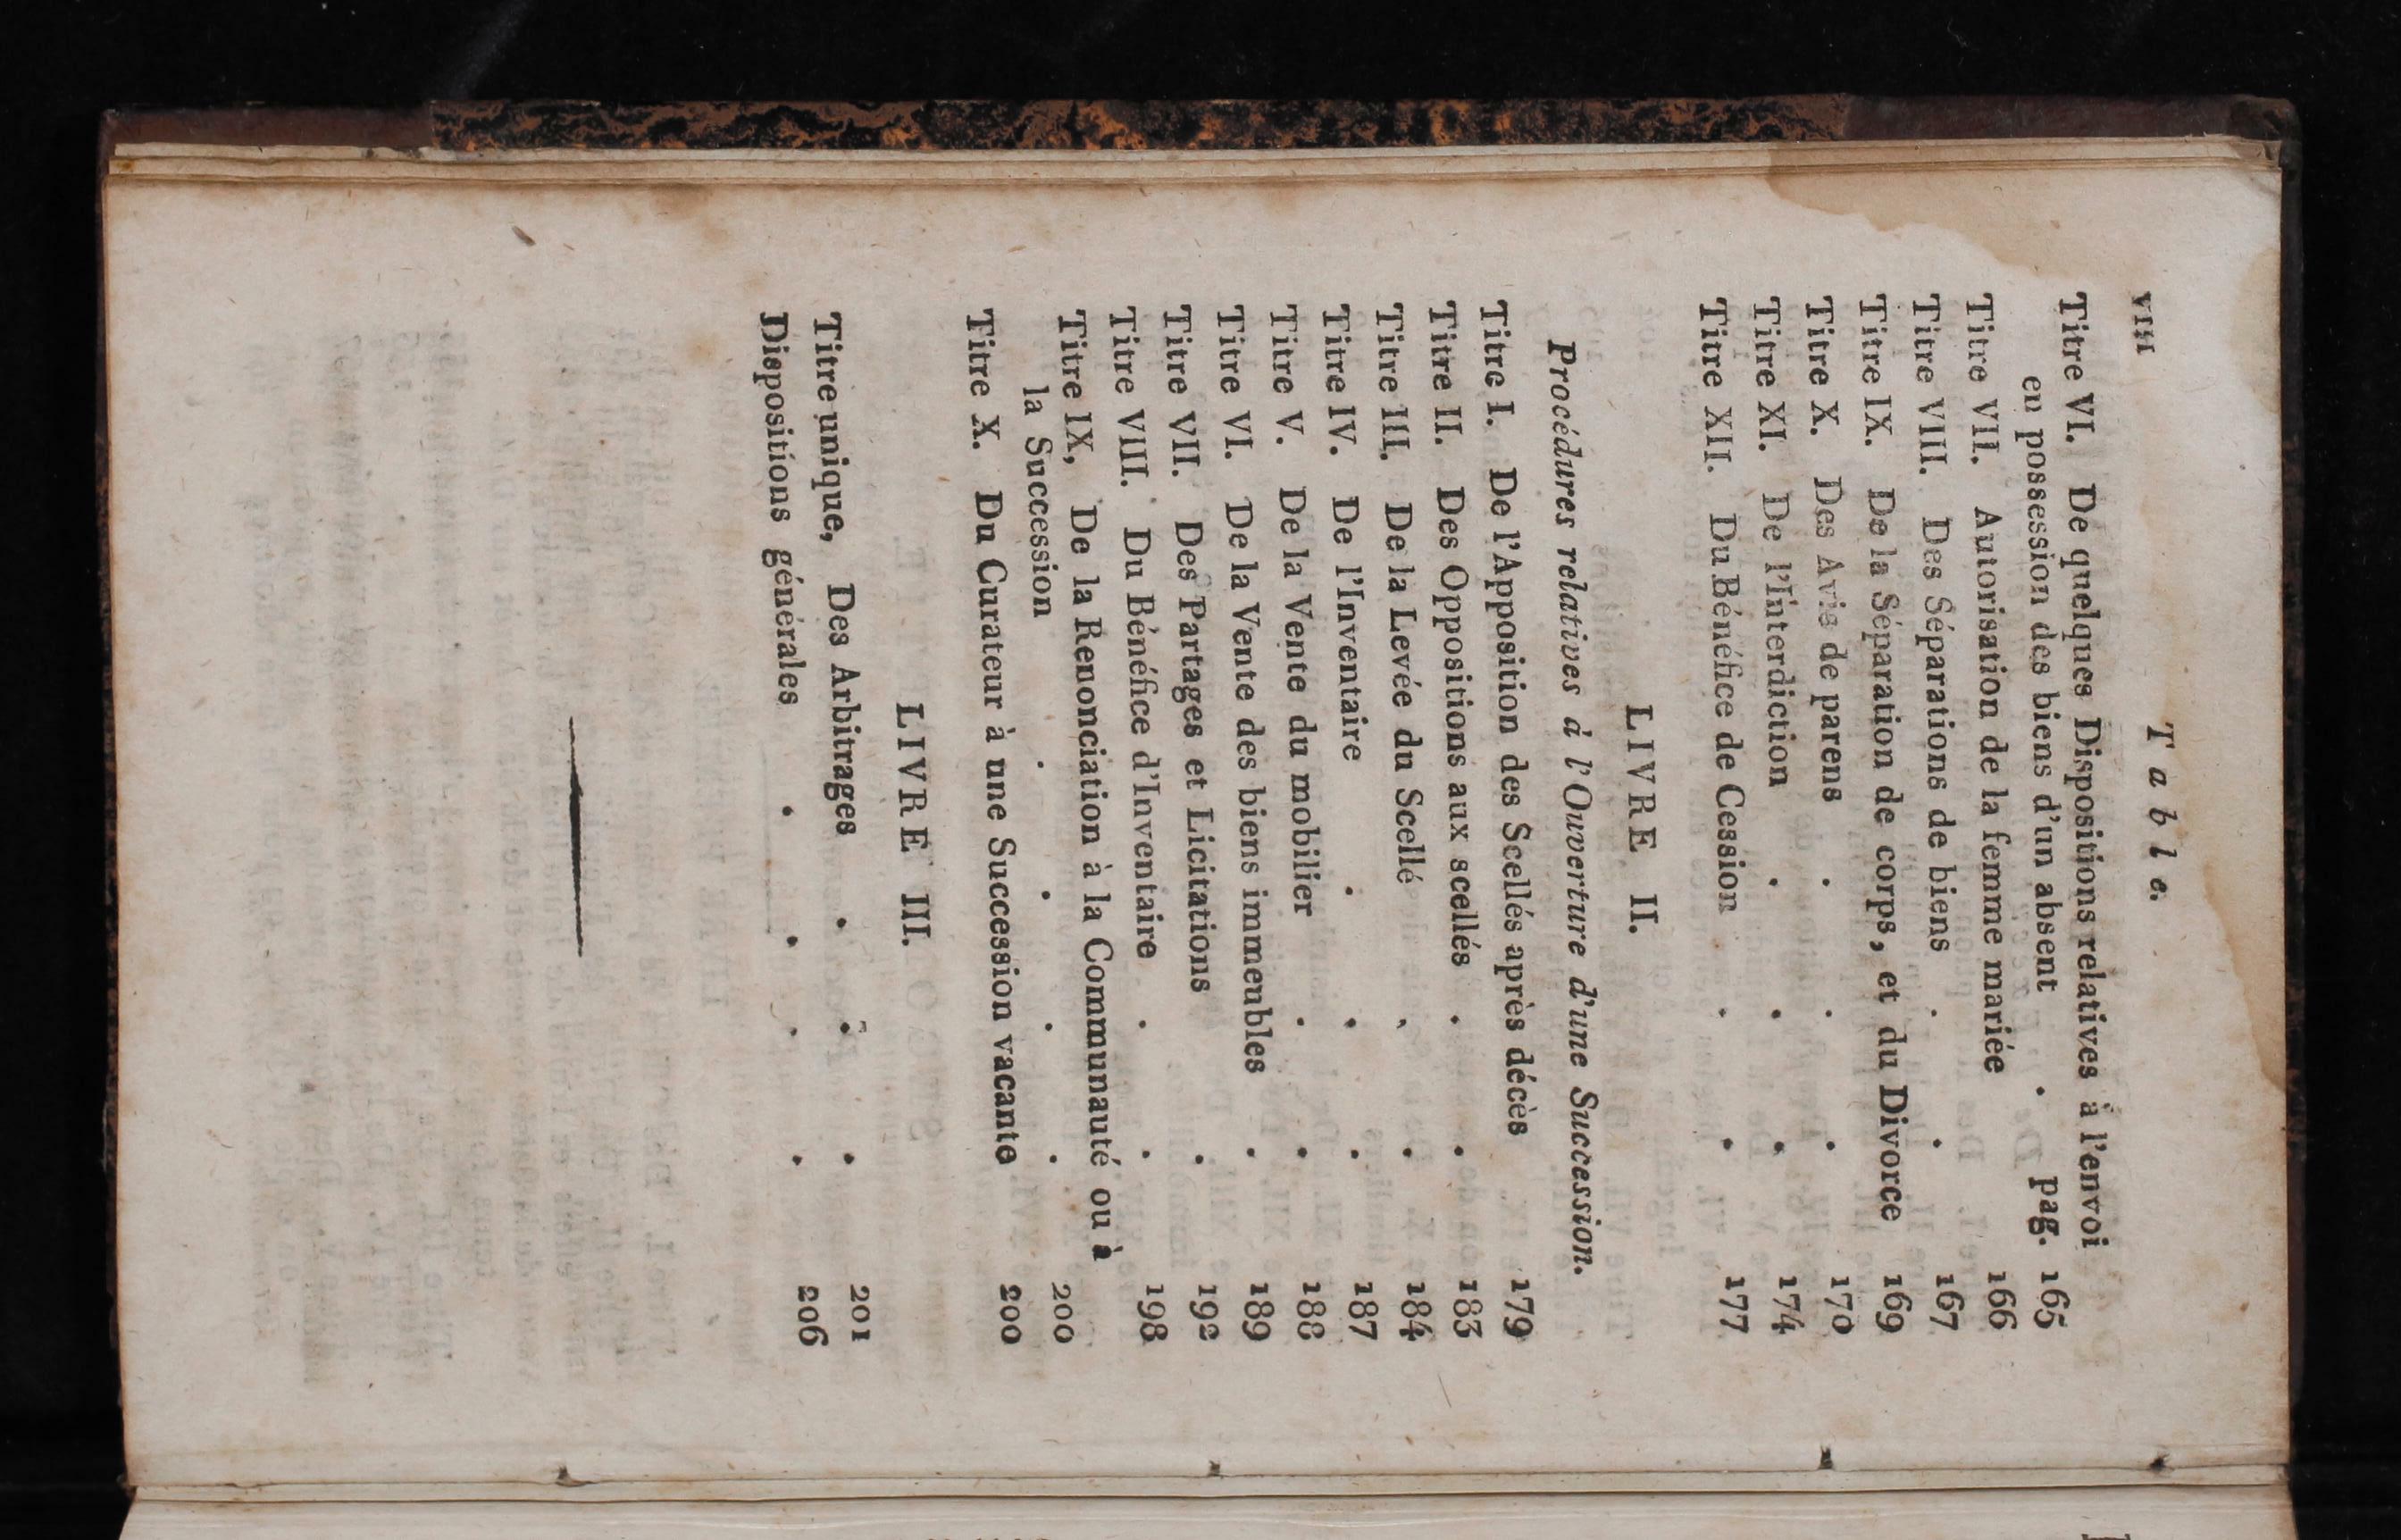 VIII Table.
Titre VI. De quelques Dispositions relatives à l'envoi
en possession des biens d'un absent . pag. 165
Titre VII. Autorisation de la femme mariée 166
Titre VIII. Des Séparations de biens . . 167
Titre IX. De la Séparation de corps, et du Divorce 169
Titre X. Des Avis de parens . . . 170
Titre XI. De l'Interdiction . . . 174
Titre XII. Du Bénéfice de Cession . . 177
LIVRE II.
Procédures relatives à l'Ouverture d'une Succession.
Titre I. De l'Apposition des Scellés après décès 179
Titre II. Des Oppositions aux scellés . . 183
Titre III. De la Levée du Scellé . . 184
Titre IV. De l'Inventaire . . . 187
Titre V. De la Vente du mobilier . . 188
Titre VI. De la Vente des biens immeubles . 189
Titre VII. Des Partages et Licitations . 192
Titre VIII. Du Bénéfice d'Inventaire . . 198
Titre IX, De la Renonciation à la Communauté ou à
la Succession . . . . 200
Titre X. Du Curateur à une Succession vacante 200
LIVRE III.
Titre unique, Des Arbitrages . . . 201
Dispositions générales . . . . 206